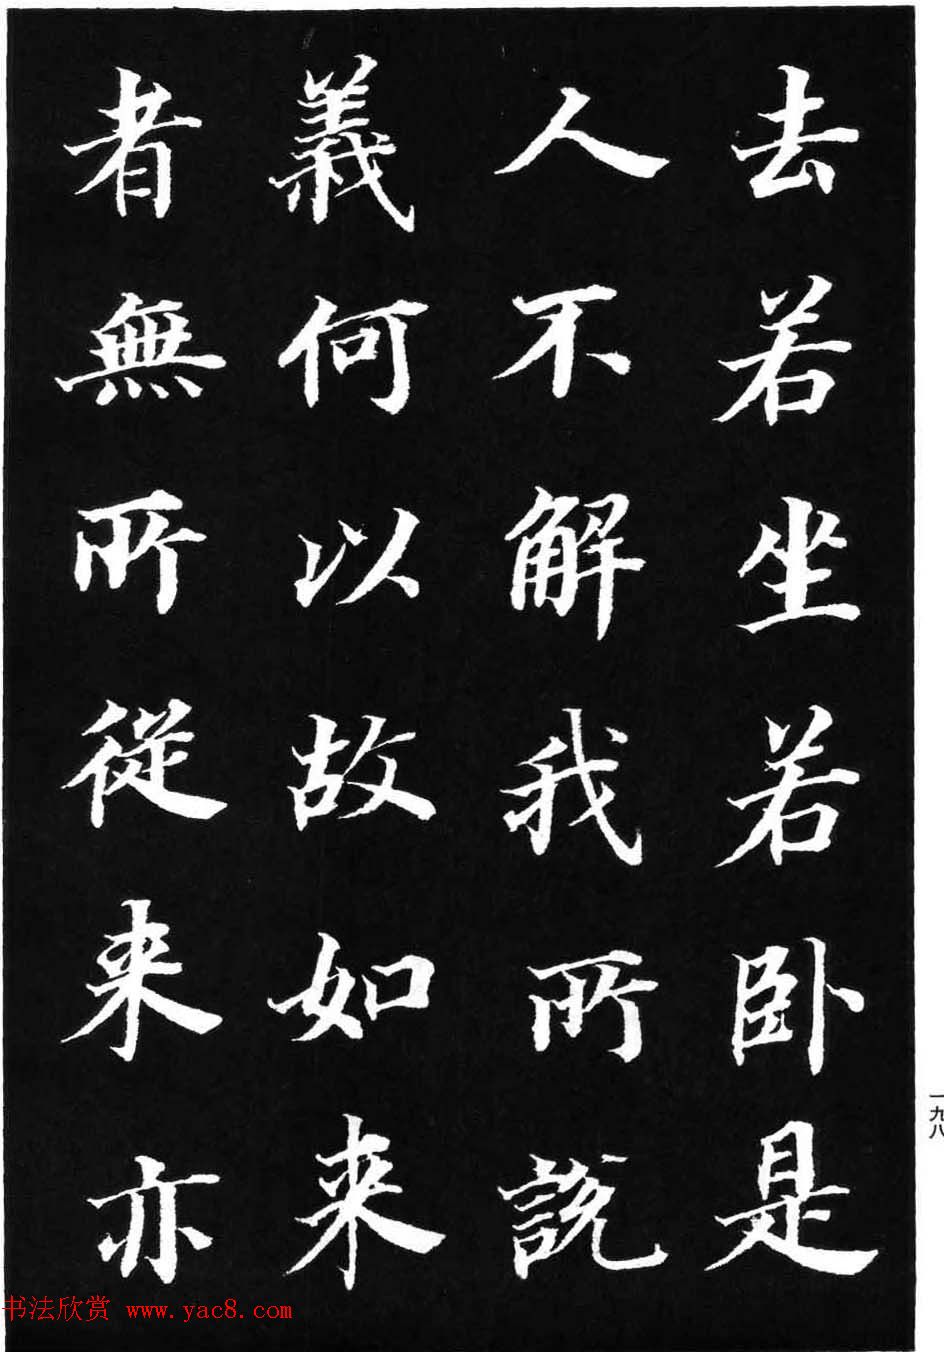 去若坐若卧是
人不解我所說
義何以故如来
者無所從来亦
一九八
书法欣赏 www.yac8.com